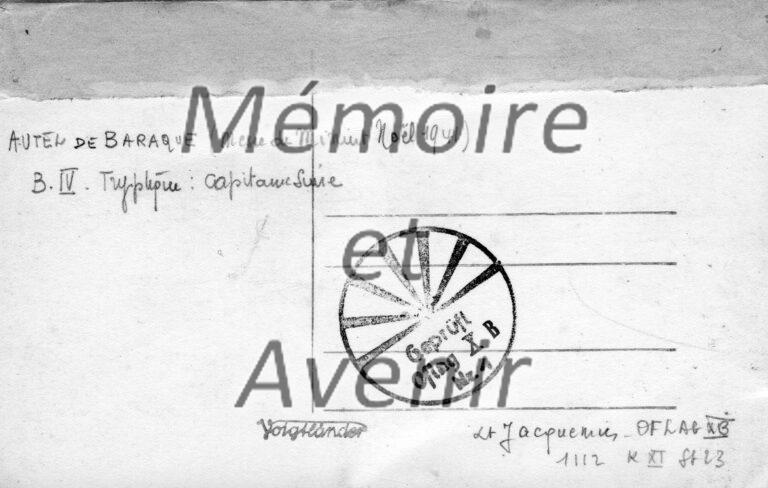 Mémoire
et
Avenir
AUTEL DE BARAQUE (Messe de Minuit Noël 1941)
B. IV. Tryptique : Capitaine
Geprüft
Oflag X. B
Nr. 1
Voigtländer
Lt Jacquemin - OFLAG XB
1112 K XI St 23